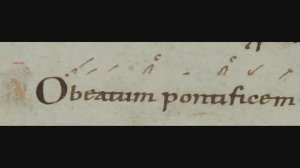 Obeatum pontificem